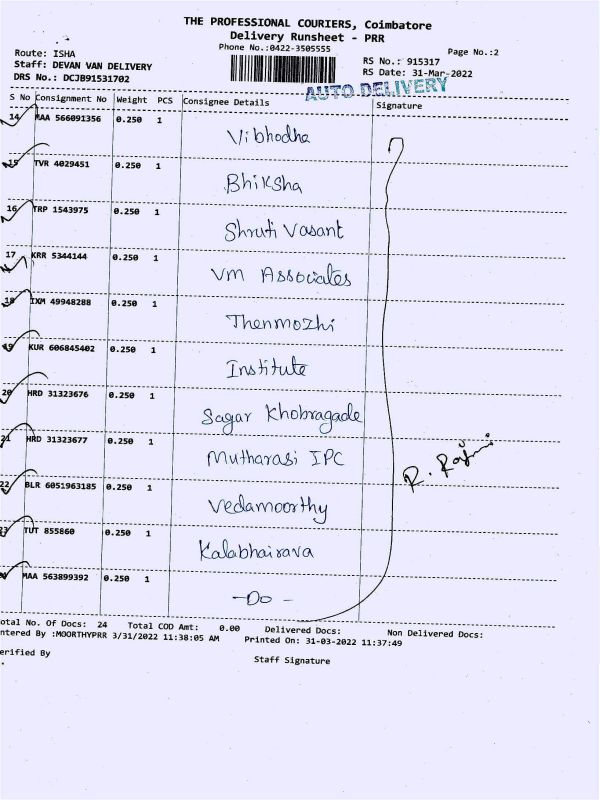 THE PROFESSIONAL COURIERS, Coimbatore
Delivery Runsheet - PRR
Phone No.:0422-3505555
Page No.:2
Route: ISHA
RS No.: 915317
Staff: DEVAN VAN DELIVERY
RS Date: 31-Mar-2022
DRS No.: DCJB91531702
AUTO DELIVERY
S No Consignment No Weight PCS Consignee Details Signature
14 MAA 566091356 0.250 1
Vibhodha
15 TVR 4029451 0.250 1
Bhiksha
16 TRP 1543975 0.250 1
Shruti Vasant
17 KRR 5344144 0.250 1
Vm Associates
18 IXM 49948288 0.250 1
Thenmozhi
19 KUR 606845402 0.250 1
Institute
20 HRD 31323676 0.250 1
Sagar Khobragade
21 HRD 31323677 0.250 1
Mutharasi IPC
22 BLR 6051963185 0.250 1
Vedamoorthy
23 TUT 855860 0.250 1
Kalabhairava
MAA 563899392 0.250 1
-Do-
otal No. Of Docs: 24 Total COD Amt: 0.00 Delivered Docs: Non Delivered Docs:
ntered By :MOORTHYPRR 3/31/2022 11:38:05 AM Printed On: 31-03-2022 11:37:49
erified By
Staff Signature